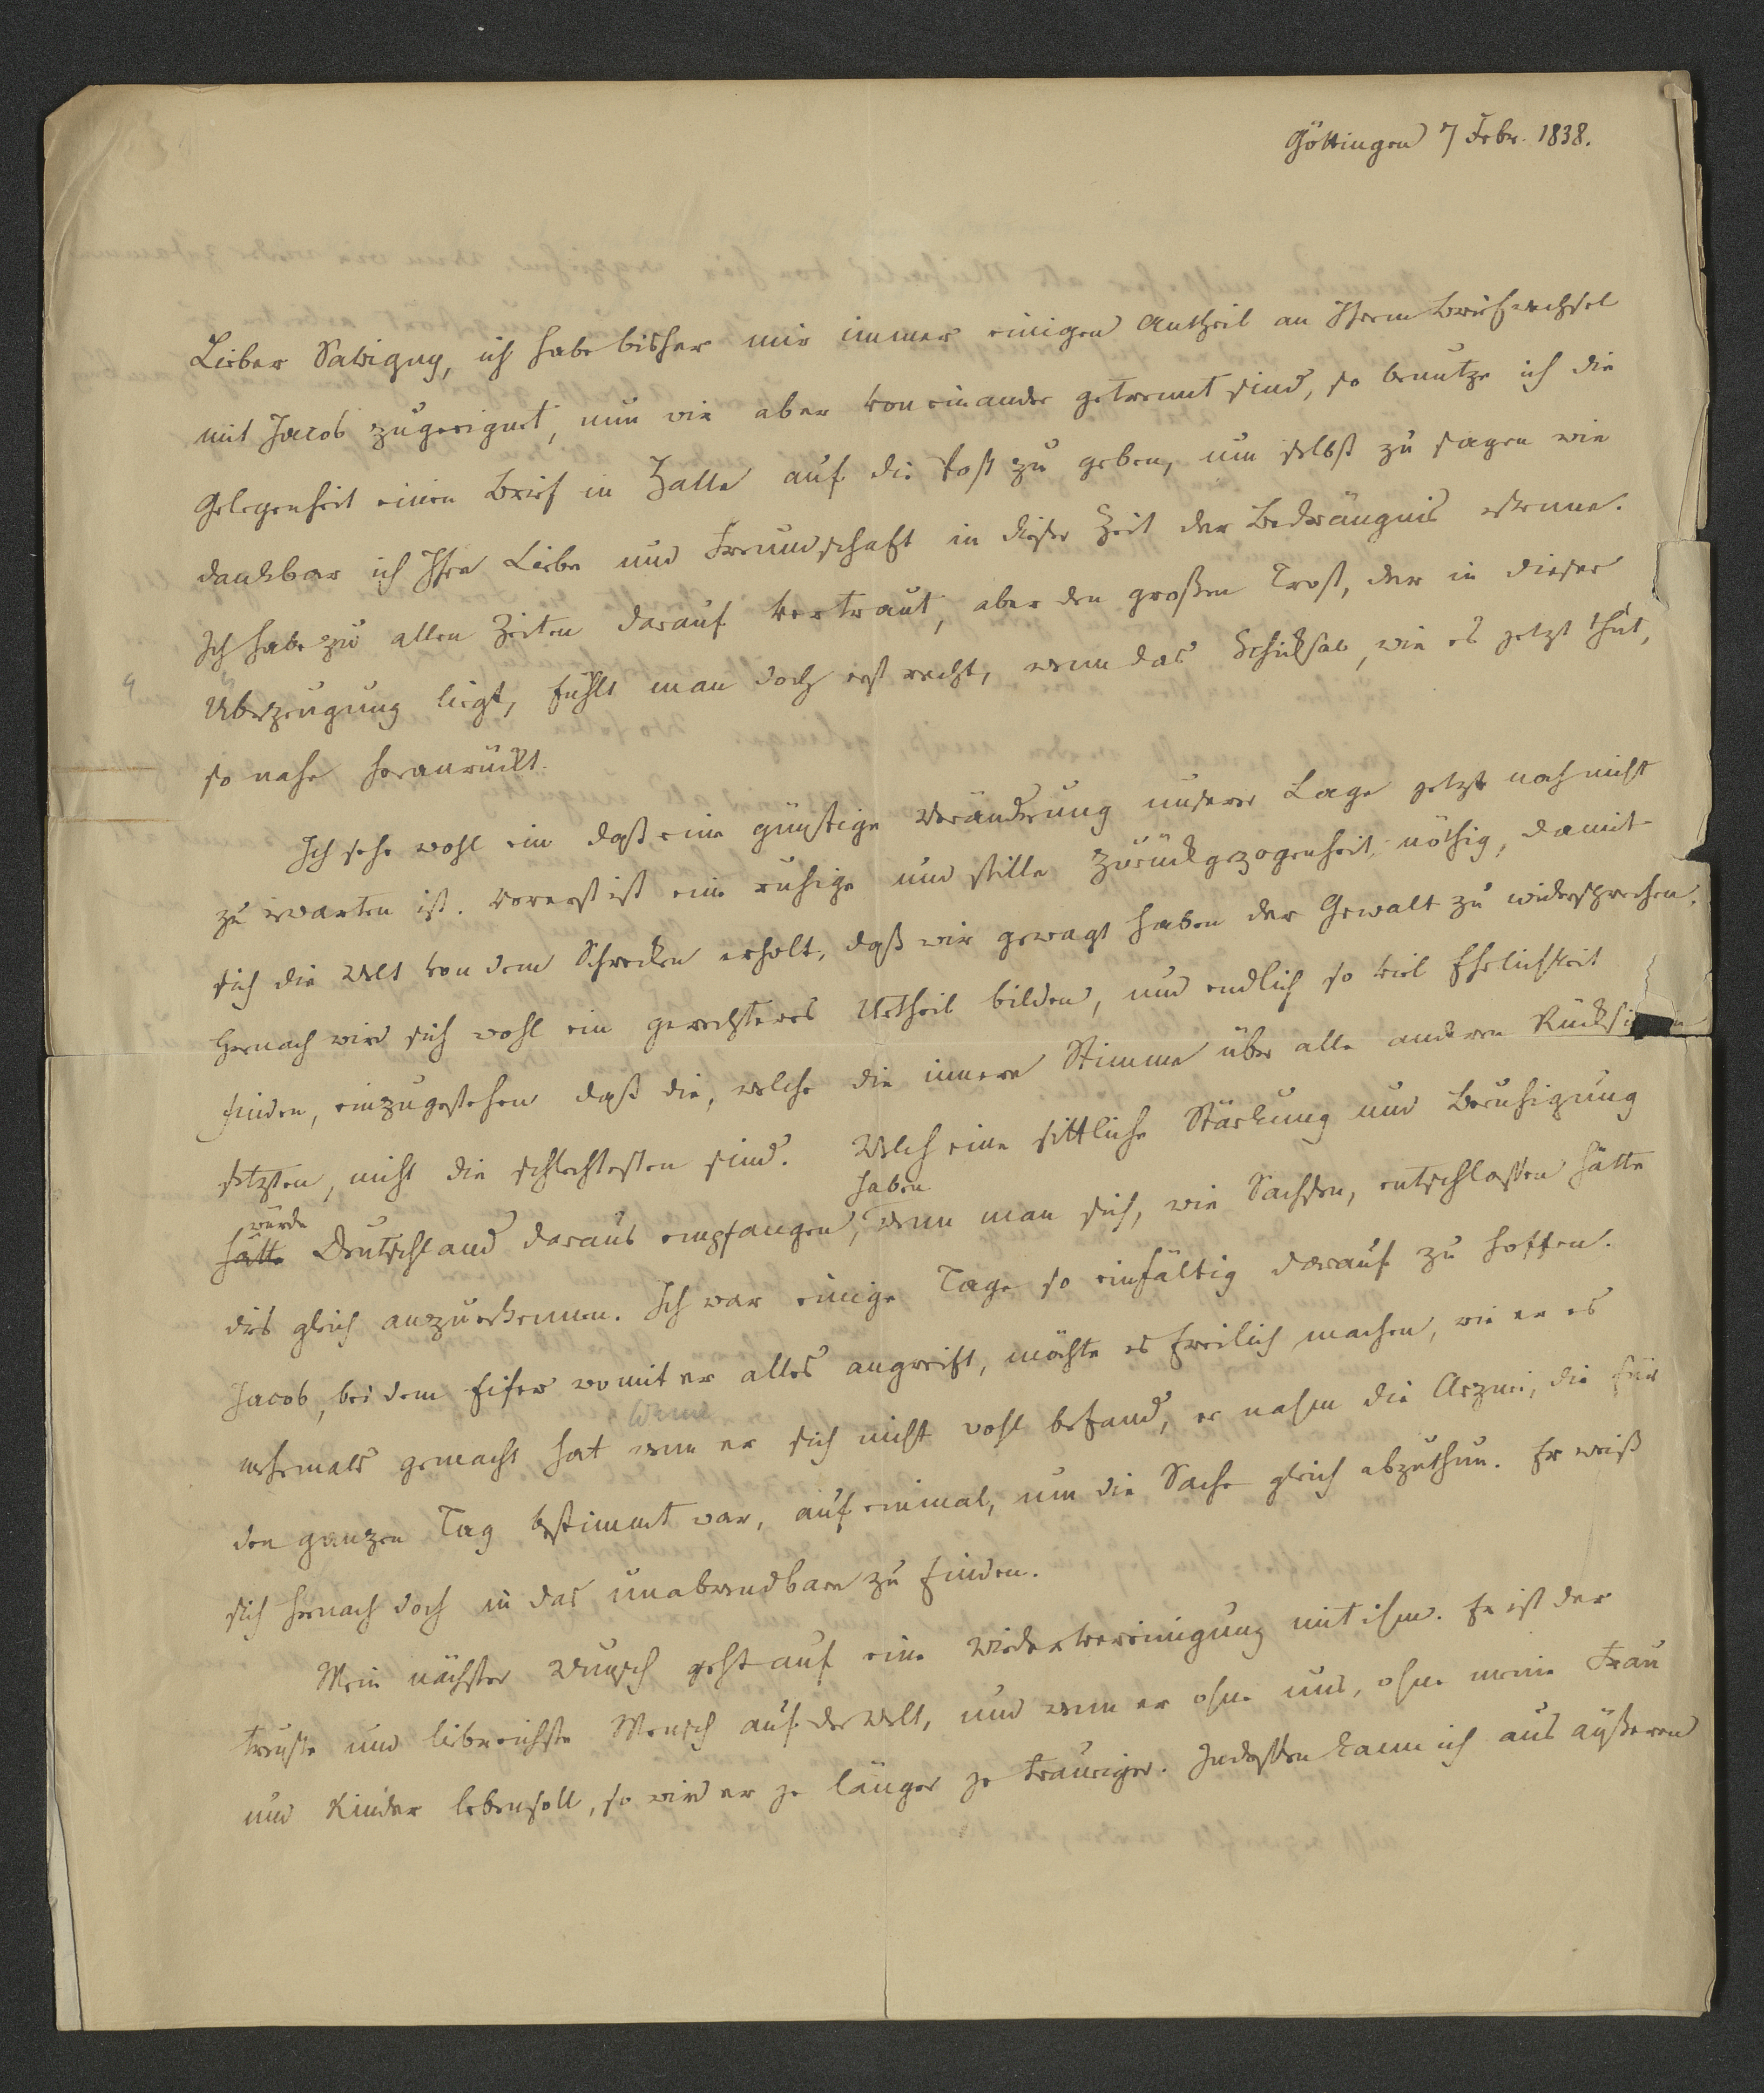 Göttingen 7 Febr. 1838.
Lieber Savigny, ich habe bisher mir immer einigen Antheil an Ihrem Briefwechsel
mit Jacob zugeeignet, nun wir aber von einander getrennt sind, so benutze ich die
Gelegenheit einen Brief in Halle auf die Post zu geben, um selbst zu sagen wie
dankbar ich Ihre Liebe und Freundschaft in dieser Zeit der Bedrängnis erkenne.
Ich habe zu allen Zeiten darauf vertraut, aber den großen Trost, der in dieser
Überzeugung liegt, fühlt man doch erst recht, wenn das Schicksal, wie es jetzt thut,
so nahe heranrückt.
Ich sehe wohl ein daß eine günstige Veränderung unserer Lage jetzt noch nicht
zu erwarten ist. vorerst ist eine ruhige und stille Zurückgezogenheit nöthig, damit
sich die Welt von dem Schrecken erholt, daß wir gewagt haben der Gewalt zu widersprechen.
Hernach wird sich wohl ein gerechteres Urtheil bilden, und endlich so viel Ehrlichkeit
finden, einzugestehen daß die, welche die innere Stimme über alle anderen
setzten, nicht die schlechtesten sind. Welch eine sittliche Stärkung und Beruhigung
würde haben
hätte Deutschland daraus empfangen, wenn man sich, wie Sachsen, entschlossen hätte
dies gleich anzuerkennen. Ich war einige Tage so einfältig darauf zu hoffen.
Jacob, bei dem Eifer womit er alles angreift, möchte es freilich machen, wie er es
wenn
mehrmals gemacht hat wenn er sich nicht wohl befand, er nahm die Arznei, die für
den ganzen Tag bestimmt war, auf einmal, um die Sache gleich abzuthun. Er weiß
sich hernach doch in das unabwendbare zu finden.
Mein nächster Wunsch geht auf eine Wiedervereinigung mit ihm. Er ist der
treuste und liebreichste Mensch auf der Welt, und wenn er ohne uns, ohne meine Frau
und Kinder leben soll, so wird er je länger je trauriger. Indessen kann ich aus äußeren